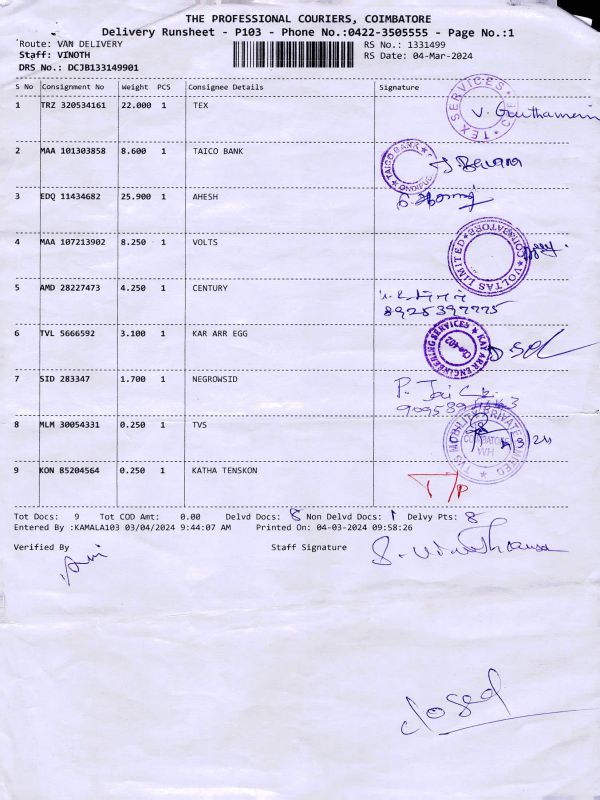 THE PROFESSIONAL COURIERS, COIMBATORE
Delivery Runsheet - P103 - Phone No.:0422-3505555 - Page No.:1
Route: VAN DELIVERY RS No.: 1331499
Staff: VINOTH RS Date: 04-Mar-2024
DRS No.: DCJB133149901
S No Consignment No Weight PCS Consignee Details Signature
1 TRZ 320534161 22.000 1 TEX TEX SERVICES V. Gowthaman
2 MAA 101303858 8.600 1 TAICO BANK TAICO BANK
3 EDQ 11434682 25.900 1 AHESH
4 MAA 107213902 8.250 1 VOLTS VOLTAS LIMITED COIMBATORE
5 AMD 28227473 4.250 1 CENTURY
8925397775
6 TVL 5666592 3.100 1 KAR ARR EGG KAY ARR ENGINEERING SERVICES
7 SID 283347 1.700 1 NEGROWSID P. Jai
8 MLM 30054331 0.250 1 TVS TVS MOBILITY PRIVATE LIMITED COIMBATORE WH
9 KON 85204564 0.250 1 KATHA TENSKON T/P
Tot Docs: 9 Tot COD Amt: 0.00 Delvd Docs: 8 Non Delvd Docs: 1 Delvy Pts: 8
Entered By :KAMALA103 03/04/2024 9:44:07 AM Printed On: 04-03-2024 09:58:26
Verified By Staff Signature
closed